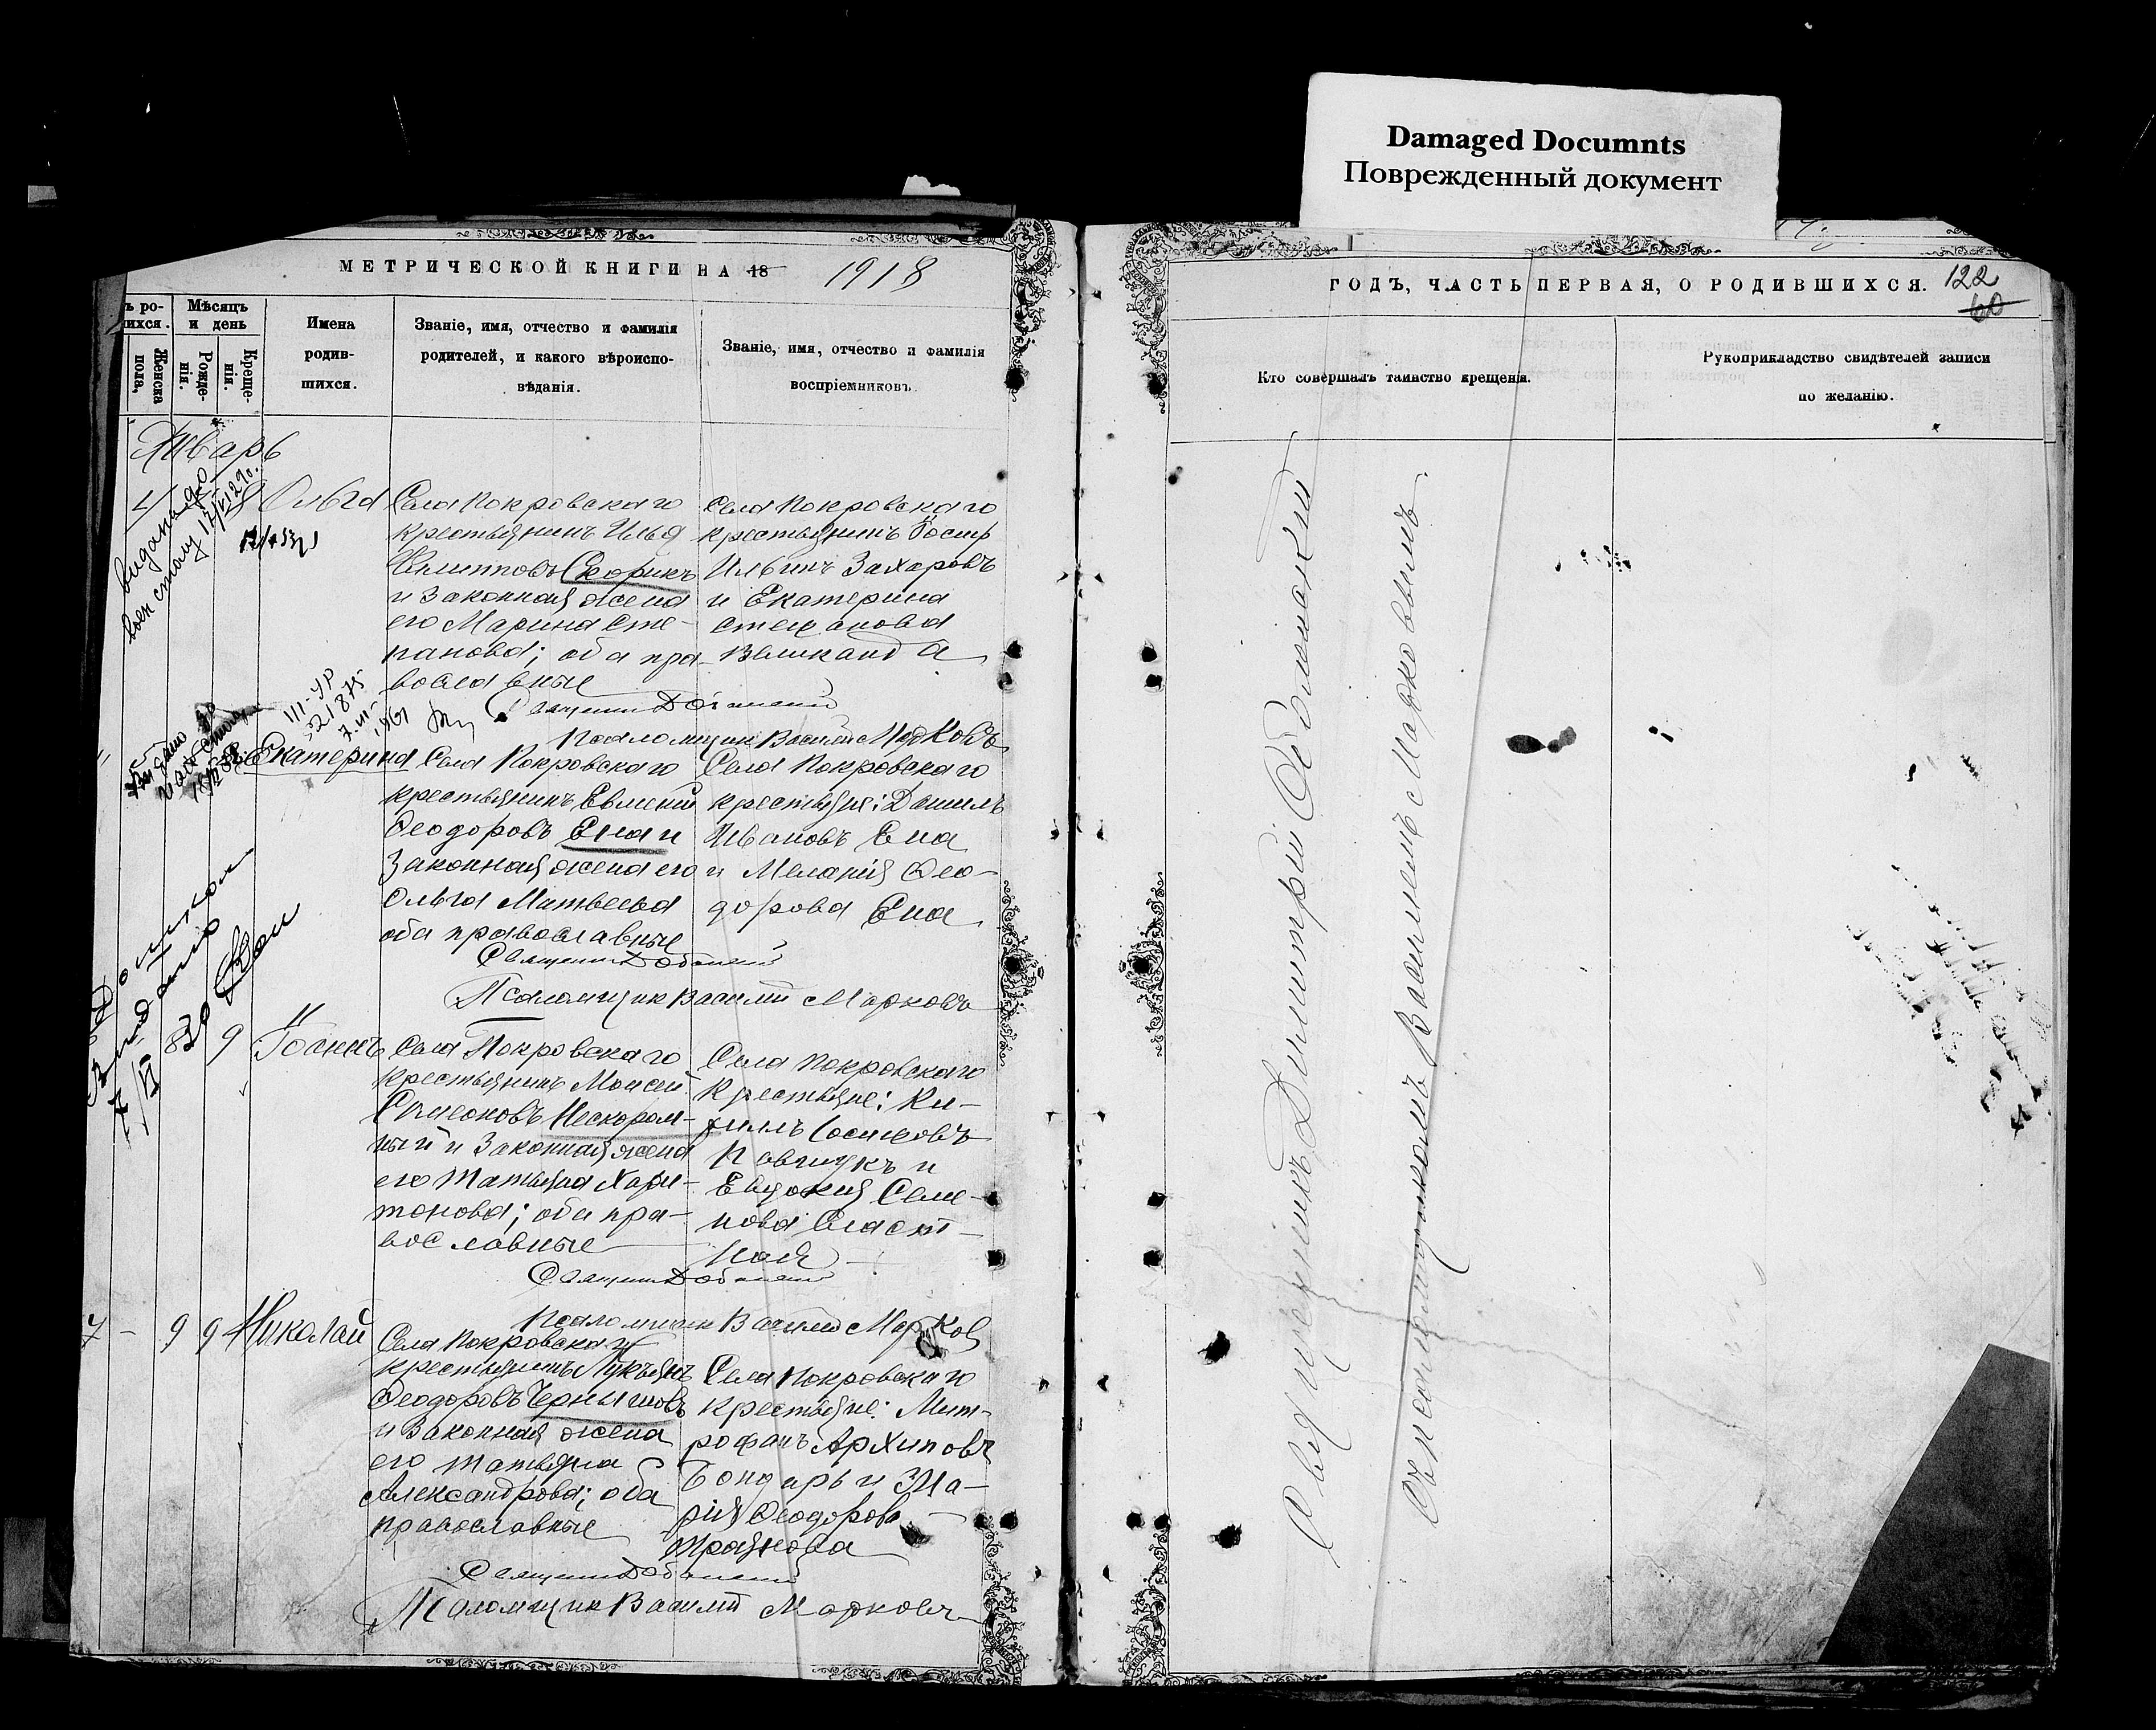 Damaged Documnts
Поврежденный документ
МЕТРИЧЕСКОЙ КНИГИ НА 18 1918
ГОДЪ, ЧАСТЬ ПЕРВАЯ, О РОДИВШИХСЯ. 122
60
ъ ро-
ихся.
Женска
пола,
Мѣсяцъ
и день
Рожде-
нія.
Креще-
нія.
Имена
родив-
шихся.
Званіе, имя, отчество и фамилія
родителей, и какого вѣроиспо-
вѣданія.
Званіе, имя, отчество и фамилія
воспріемниковъ.
Кто совершалъ таинство крещенія.
Рукоприкладство свидѣтелей записи
по желанію.
Январь
4
Ольга
Села Покровскаго
крестьянинъ Илья
Скорикъ
и законная жена
его Марина Сте-
панова; оба пра-
вославные
Села Покровскаго
крестьянинъ
Ильинъ Захаровъ
и Екатерина
Стефанова
Великанова
Псаломщик Василий Марковъ
Екатерина
Села Покровскаго
крестьянинъ Евмений
Феодоровъ Ена и
законная жена его
Ольга Матвеева
оба православные
Села Покровскаго
крестьяне: Даниилъ
Ивановъ Ена
и Мелания Фео-
дорова Ена
Псаломщик Василий Марковъ
8 9
Іоаннъ
Села Покровскаго
крестьянинъ Моисей
Симеоновъ Нескором-
ный и законная жена
его Татьяна Хари-
тонова; оба пра-
вославные
Села Покровскаго
крестьяне: Ки-
риллъ
и
Евдокия Семе-
нова Сласт-
ная
Псаломщик Василий Марков
7 - 9 9
Николай
Села Покровскаго
крестьянинъ Лукьянъ
Феодоровъ Чернышовъ
и законная жена
его Татьяна
Александрова; оба
православные
Села Покровскаго
крестьяне: Мит-
рофанъ Архиповъ
Бондарь и Ма-
рия Феодорова
Траянова
Псаломщик Василий Марковъ
Священникъ Димитрий
съ псаломщикомъ Василиемъ Марковымъ